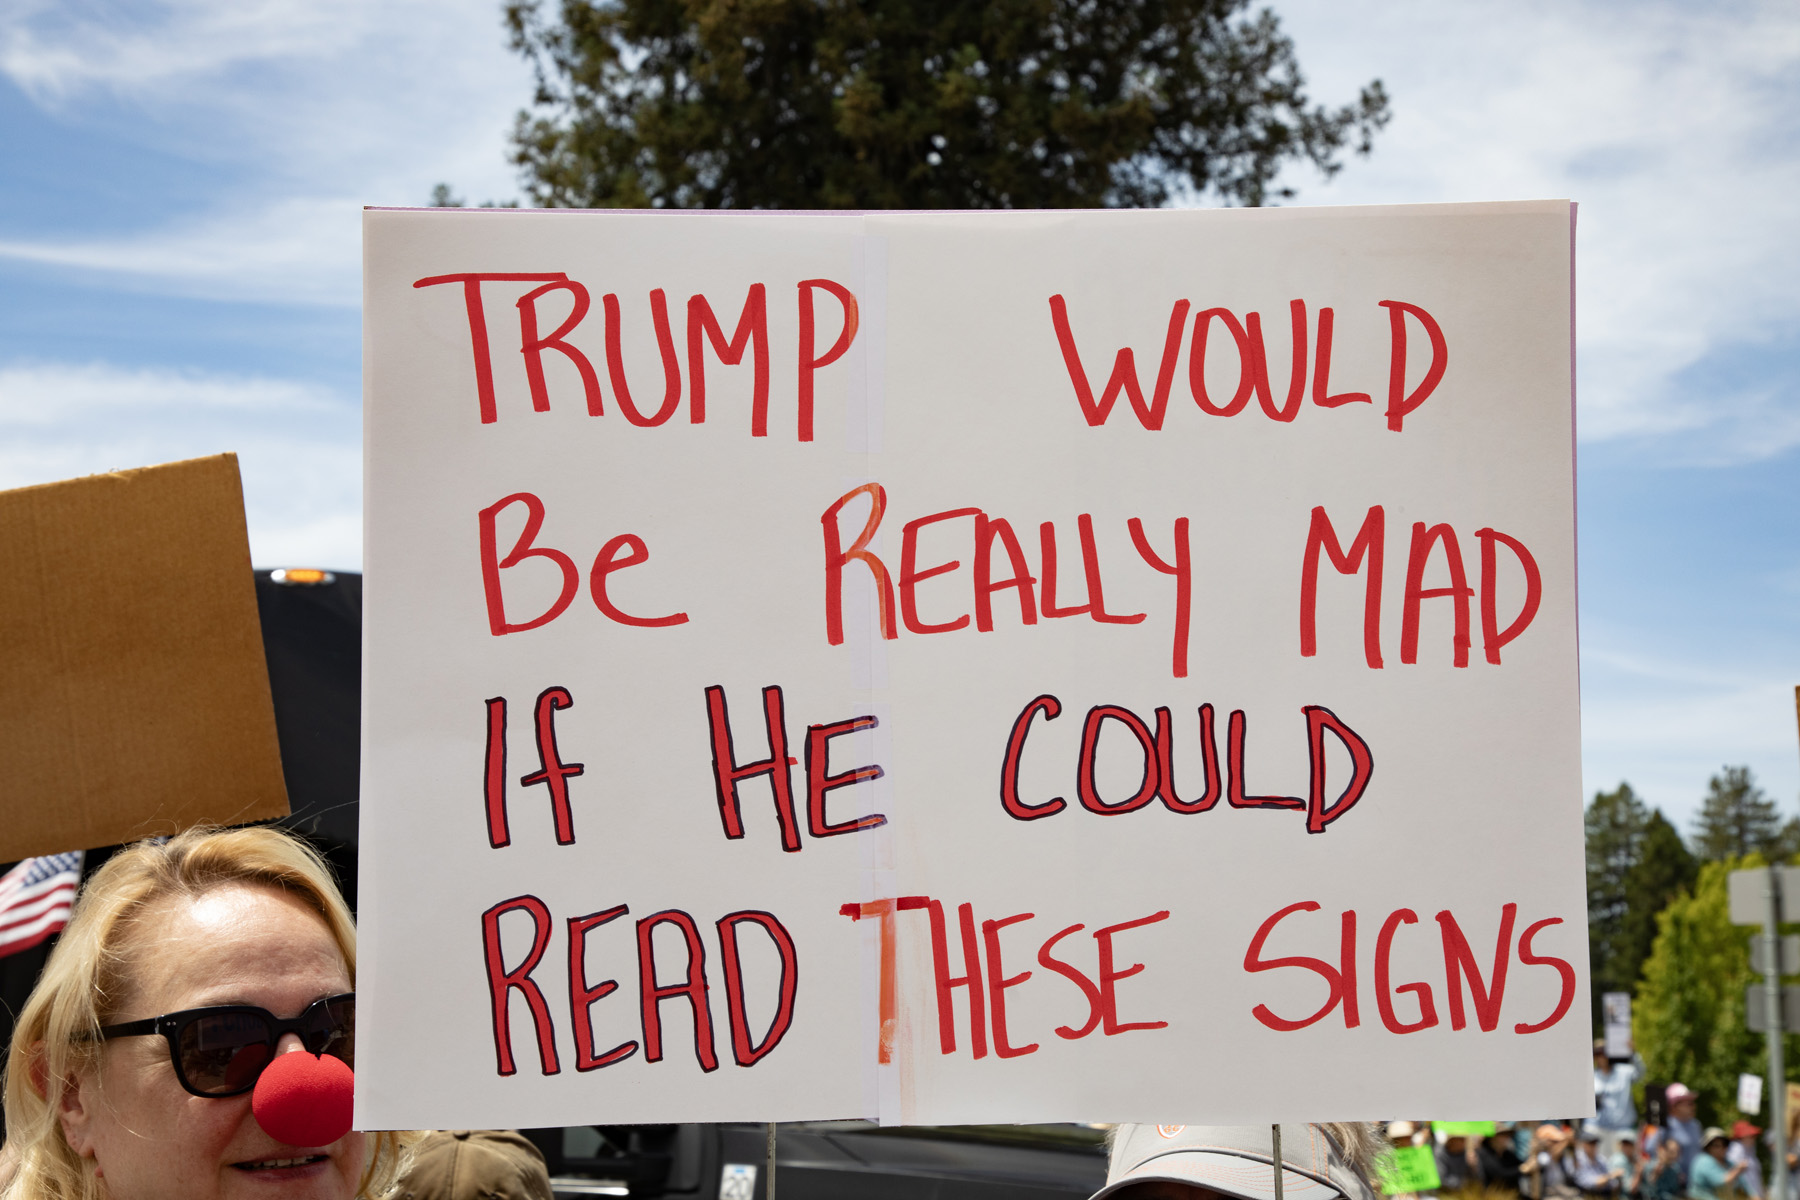 TRUMP WOULD
Be REALLY MAD
If HE COULD
READ THESE SIGNS
20